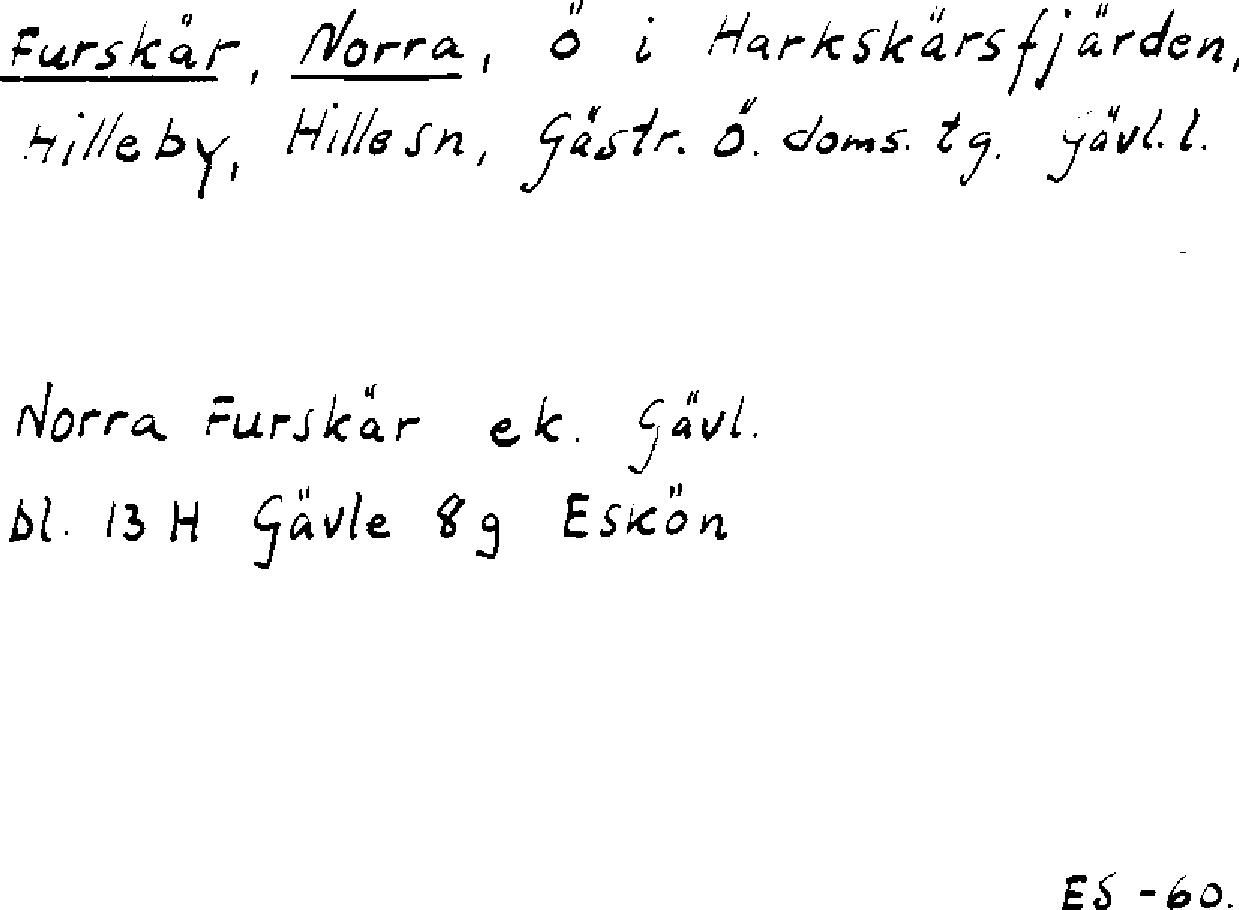 Furskär, Norra, ö i Harkskärsfjärden,
Hilleby, Hille sn, Gästr. ö. doms. tg. Gävl. l.
Norra Furskär ek. Gävl.
bl. 13 H Gävle 8g Eskön
ES -60.